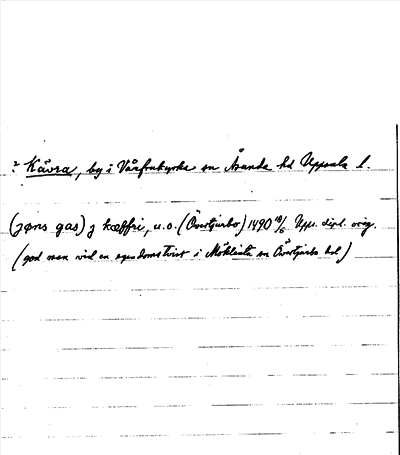 ? Kävra, by i Vårfrukyrka sn Åsunda hd Uppsala l.
(jøns gas) j kæffri, u.o. (Övertjurbo) 1490 10/6 Upps. dipl. orig.
(god man vid en egendomstvist i Möklinta sn Övertjurbo hd)